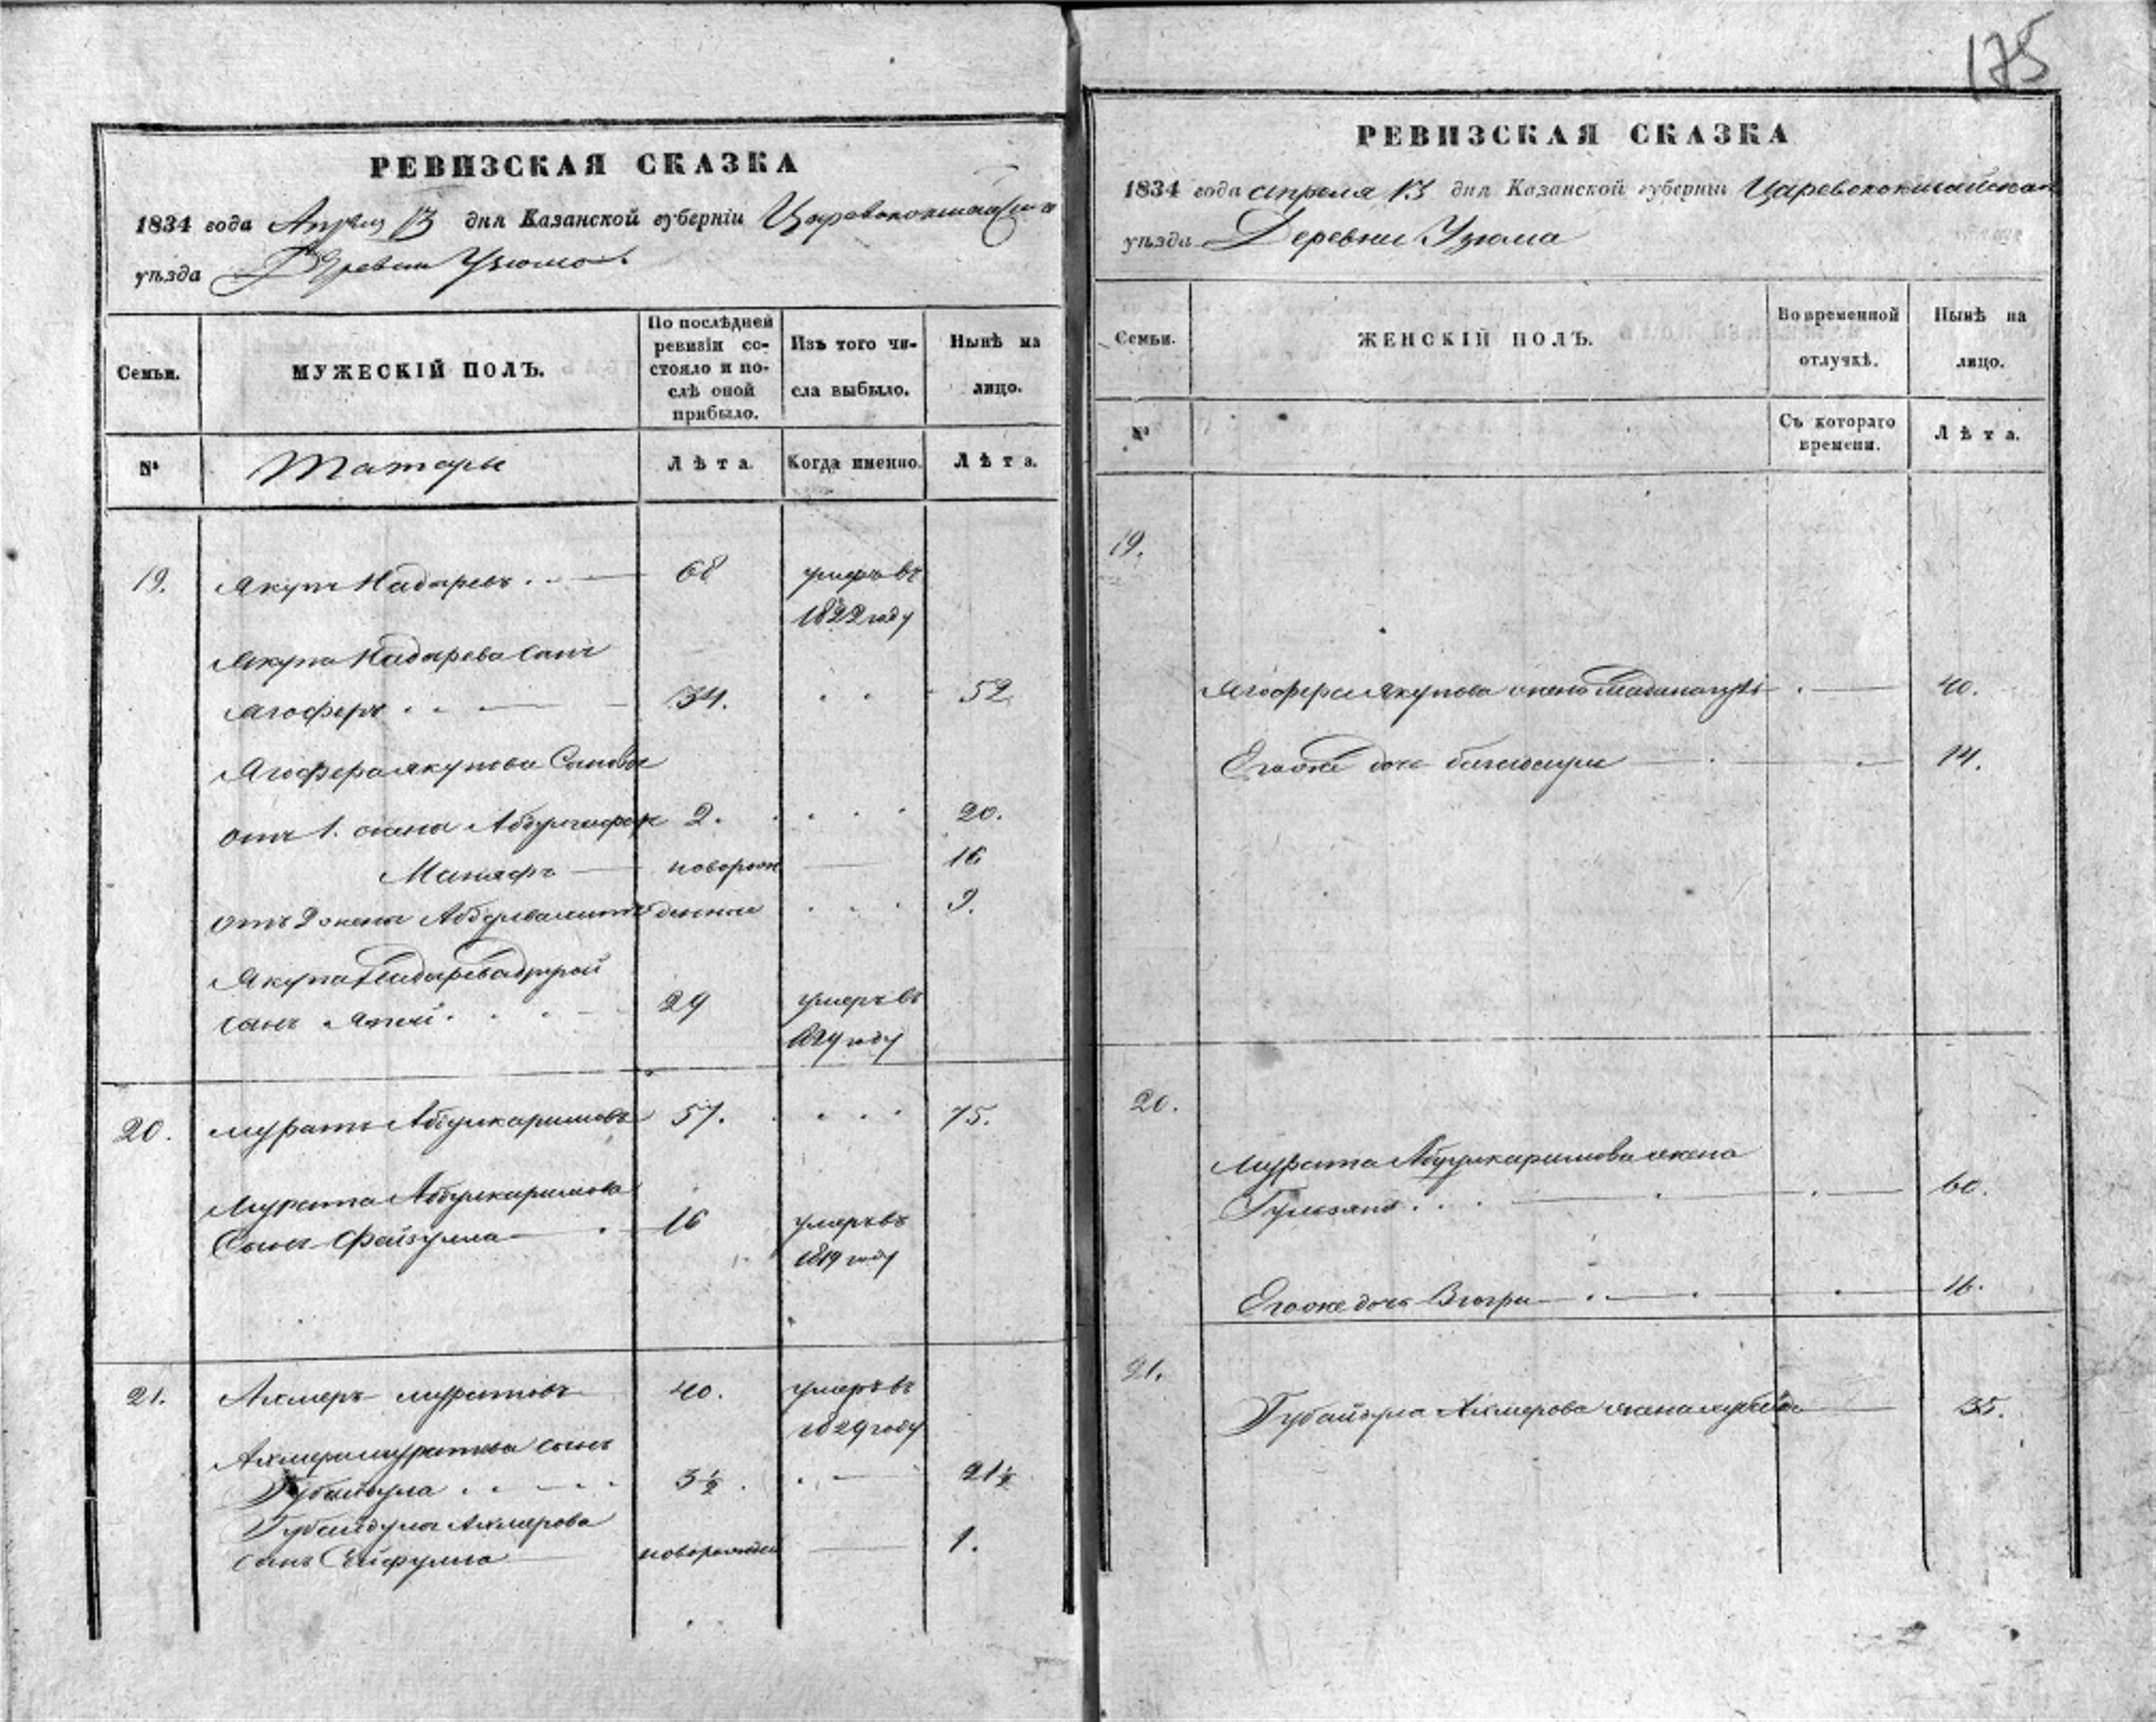 175
РЕВИЗСКАЯ СКАЗКА
1834 года Апреля 13 дня Казанской губерніи Царевококшайскаго
уѣзда Деревни Узюма
Семьи.
МУЖЕСКІЙ ПОЛЪ.
По послѣдней ревизіи состояло и послѣ оной прибыло.
Изъ того числа выбыло.
Нынѣ на лицо.
№
Татары
Лѣта.
Когда именно.
Лѣта.
19. Якупъ Надыревъ 68 умеръ въ
1822 году
Якупа Надырева сынъ
Ягоферъ 34. 52
Ягофера Якупова Сыновья
отъ 1. жены 2. 20.
Манафъ новорож 16
отъ 2 жены денные 9.
Якупа Надырева другой
сынъ 29 умеръ въ
году
20. Муратъ Абдулкаримовъ 57. 75.
Мурата Абдулкаримова
Сынъ Файзулла 16 умеръ въ
1819 году
21. Ахмеръ Муратовъ 40. умеръ въ
1829 году
Ахмера Муратова сынъ
Губайдула 3½ 21½
Губайдулы Ахмерова
сынъ Сейфулла 1.
РЕВИЗСКАЯ СКАЗКА
1834 года апреля 13 дня Казанской губерніи Царевококшайскаго
уѣзда Деревни Узюма
Семьи.
ЖЕНСКІЙ ПОЛЪ.
Во временной отлучкѣ.
Нынѣ на лицо.
№
Съ котораго времени.
Лѣта.
19.
Ягофера Якупова жена 40.
Егоже дочь 14.
20.
Мурата Абдулкаримова жена
60.
Егоже дочь 16.
21.
Губайдула Ахмерова жена 35.